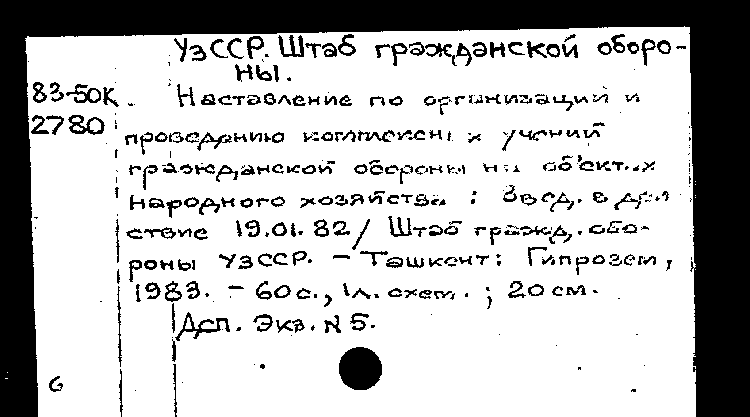 УзССР. Штаб гражданской оборо-
ны.
83-50к. Наставление по организации и
2780 проведению комплексн х учений
гражданской обороны на объект х
народного хозяйства : Введ. в дей
ствие 19.01.82 / Штаб гражд. обо-
роны УзССР. - Ташкент: Гипрозем,
1983. - 60 с., 1 л. схем. ; 20 см.
Дсп. Экз. N 5.
6